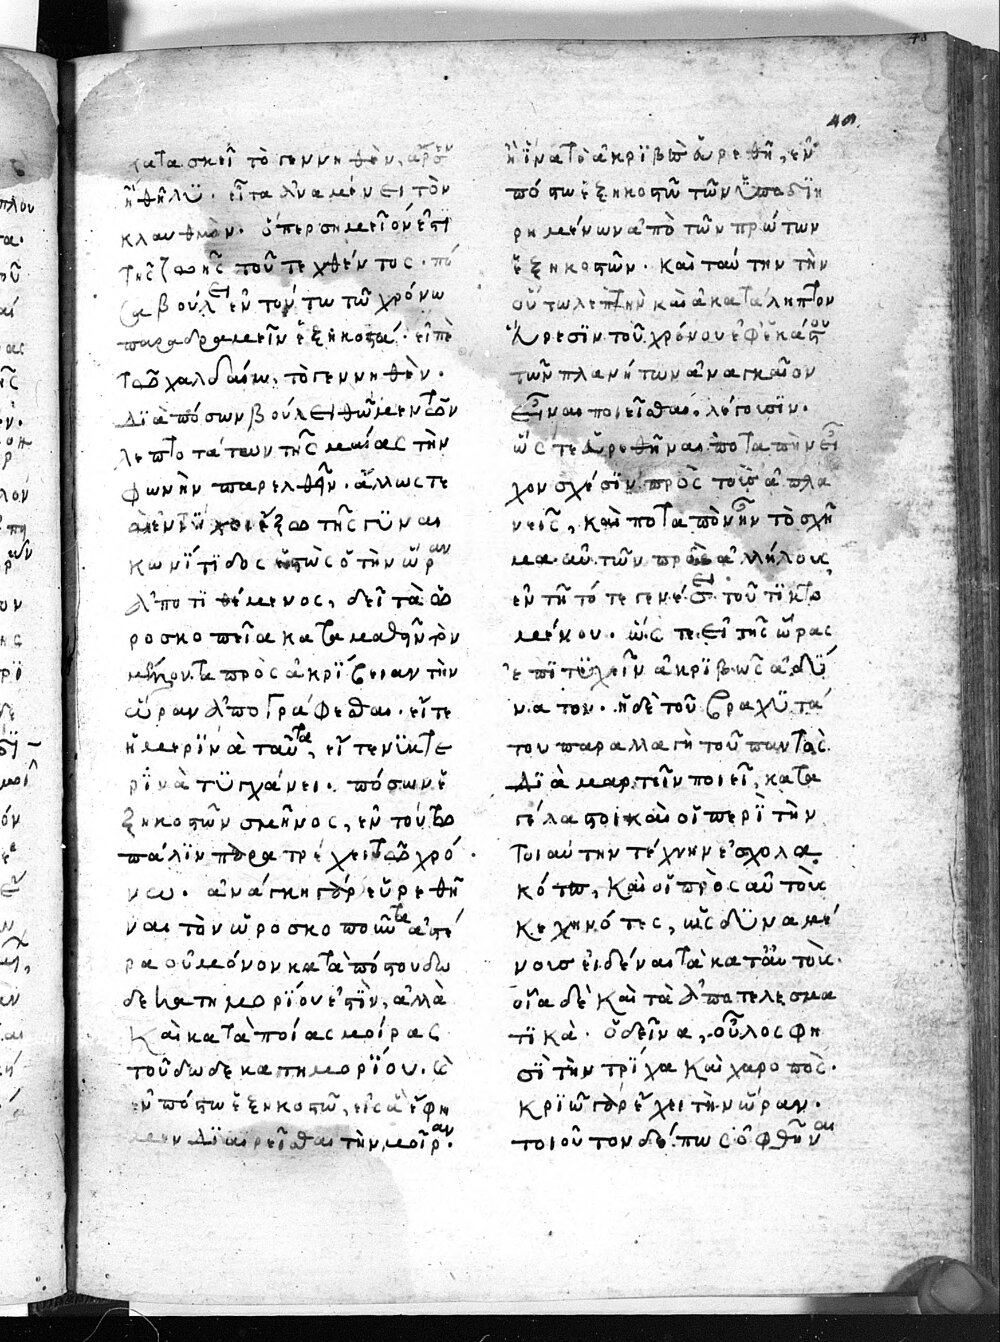 κατασκεῖ τὸ γεννηθὲν, ἄρρεν
ἢ θῆλϋ. εἶτα ἀναμένει τὸν
κλαυθμὸν. ὅπερ σημεῖον ἐστὶ
τῆς ζωῆς τοῦ τεχθέντος. πό
σα βούλει ἐν τούτω τῶ χρόνω
παραδραμεῖν ἑξηκοστά. εἰπὲ
τῶ χαλδαίω, τὸ γεννηθὲν.
δϊὰ πόσων βούλει θῶμεν τῶν
λεπτοτάτων τῆς μαίας τὴν
φωνὴν παρελθεῖν. ἄλλως τε
ἂν ἐντύχοι ἔξω τῆς γϋναι
κωνίτϊδος ἑστὼς ὁ τὴν ὥραν
ἀποτϊθέμενος, δεῖ τὰ ὡ
ροσκοπεῖα καταμαθεῖν τὸν
μέλλοντα πρὸς ἀκρίβειαν τὴν
ὥραν ἀπογράφεσθαι. εἴτε
ἡμερϊνὰ ταῦτα, εἴτε νϊκτε
ρϊνὰ τϋγχάνει. πόσων ἑ
ξηκοστῶν σμῆνος, ἐν τούτω
πάλϊν παρατρέχει τῶ χρό
νω. ἀνάγκη γὰρ εὑρεθῆ
ναι τὸν ὡροσκοποῦντα ἀστέ
ρα οὐ μόνον κατὰ πόστου δω
δεκατημορϊου ἐστϊν, ἀλλὰ
καὶ κατὰ ποίας μοίρας
τοῦ δωδεκατημορϊου. καὶ
ἐν πόστω ἑξηκοστῶ, εἰς ἃ ἔφη
μεν δϊαιρεῖσθαι τὴν μοῖραν.
ἢ ἵνα τὸ ἀκριβὲς εὑρεθῆ, ἐν
πόστω ἑξηκοστῶ τῶν ὑποδϊη
ρημένων ἀπὸ τῶν πρώτων
ἑξηκοστῶν. καὶ ταύτην τὴν
οὕτω λεπτὴν καὶ ἀκατάληπτον
εὕρεσϊν τοῦ χρόνου ἐφ' ἑκάστου
τῶν πλανήτων ἀναγκαῖον
εἶναι ποιεῖσθαι, λέγουσϊν.
ὥς τε εὑρεθῆναι ποταπὴν εἶ
χον σχέσϊν πρὸς τοὺς ἀπλα
νεῖς, καὶ ποταπὸν ἦν τὸ σχῆ
μα αὐτῶν πρὸς ἀλλήλους
ἐν τῆ τότε γενέσει τοῦ τϊκτο
μένου. ὥς τε εἰ τῆς ὥρας
ἐπϊτϋχεῖν ἀκρϊβῶς ἀδϋ
νατον. ἡ δὲ τοῦ βραχϋτά
του παραλλαγὴ τοῦ παντὸς
δϊαμαρτεῖν ποιεῖ, κατα
γέλαστοι καὶ οἱ περὶ τὴν
τοιαύτην τέχνην ἐσχολα
κότες, καὶ οἱ πρὸς αὐτοὺς
κεχηνότες, ὡς δϋναμέ
νους εἰδέναι τὰ κατ' αὐτοὺς.
οἷα δὲ καὶ τὰ ἀποτελεσμα
τϊκὰ. ὁ δεῖνα, οὖλος φη
σϊ τὴν τρίχα καὶ χαροπὸς.
κρϊῶ γὰρ ἔχει τὴν ὥραν.
τοιοῦτον δέ πως ὀφθῆναι